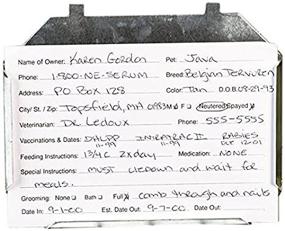 Name of Owner: Karen Gordon Pet: Java
Phone: 1-800-NE-SERUM Breed: Belgian Tervuren
Address: PO Box 128 Color: Tan D.O.B. 08-21-93
City/St./Zip: Topsfield, MA 01983 M F Neutered Spayed
Veterinarian: Dr. Ledoux Phone: 555-5555
Vaccinations & Dates: DHLPP INTRATRAC II RABIES
11-99 11-99 DUE 12-01
Feeding Instructions: 1 3/4 C 2x day Medication: NONE
Special Instructions: must lie down and wait for
meals.
Grooming: None Bath Full comb through and nails
Date In: 9-1-00 Est. Date Out: 9-7-00 Date Out: